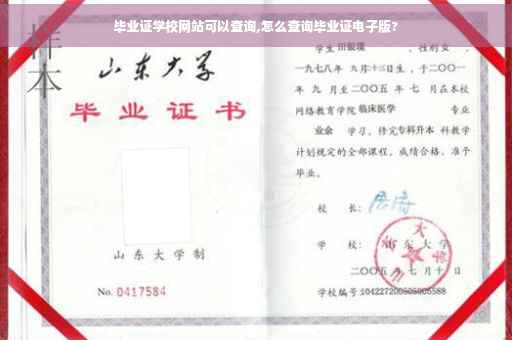 毕业证学校网站可以查询,怎么查询毕业证电子版?
样本
山东大学
毕业证书
山东大学制
No. 0417584
学生 田银璞 ,性别 女 ,
一九七八年 九月十三日生,于二〇〇一
年 九 月至二〇〇五 年 七 月在本校
网络教育学院 临床医学 专业
业余 学习,修完专科升本 科教学
计划规定的全部课程,成绩合格,准予
毕业。
校 长:
学 校: 山东大学
二〇〇五 年 七 月 十 日
学校编号:
山东大学